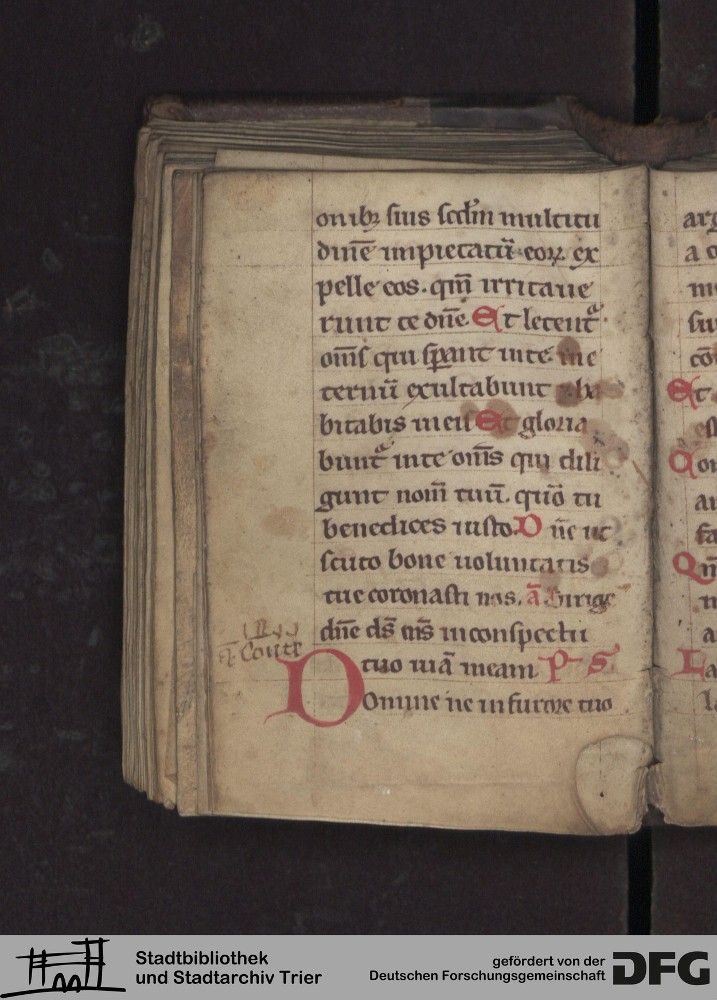 onibꝫ suis scd̄m multitu
dinē impietatū eoꝝ ex
pelle eos. qm̄ irritaue
runt te dn̄e. Et letentᷓ
om̄s qui sperant in te. in e
ternū exultabunt & ha
bitabis in eis Et gloria
buntᷓ in te om̄s qui dili
gunt nom̄ tuū. quō tu
benedices iusto. D n̄e ut
scuto bone uoluntatis
tue coronasti nos. ā Dirige
dn̄e ds̄ m̄s in conspectu
tuo uiā meam P S
Domine ne in furore tuo
arg
a
Et
Stadtbibliothek
und Stadtarchiv Trier
gefördert von der
Deutschen Forschungsgemeinschaft DFG